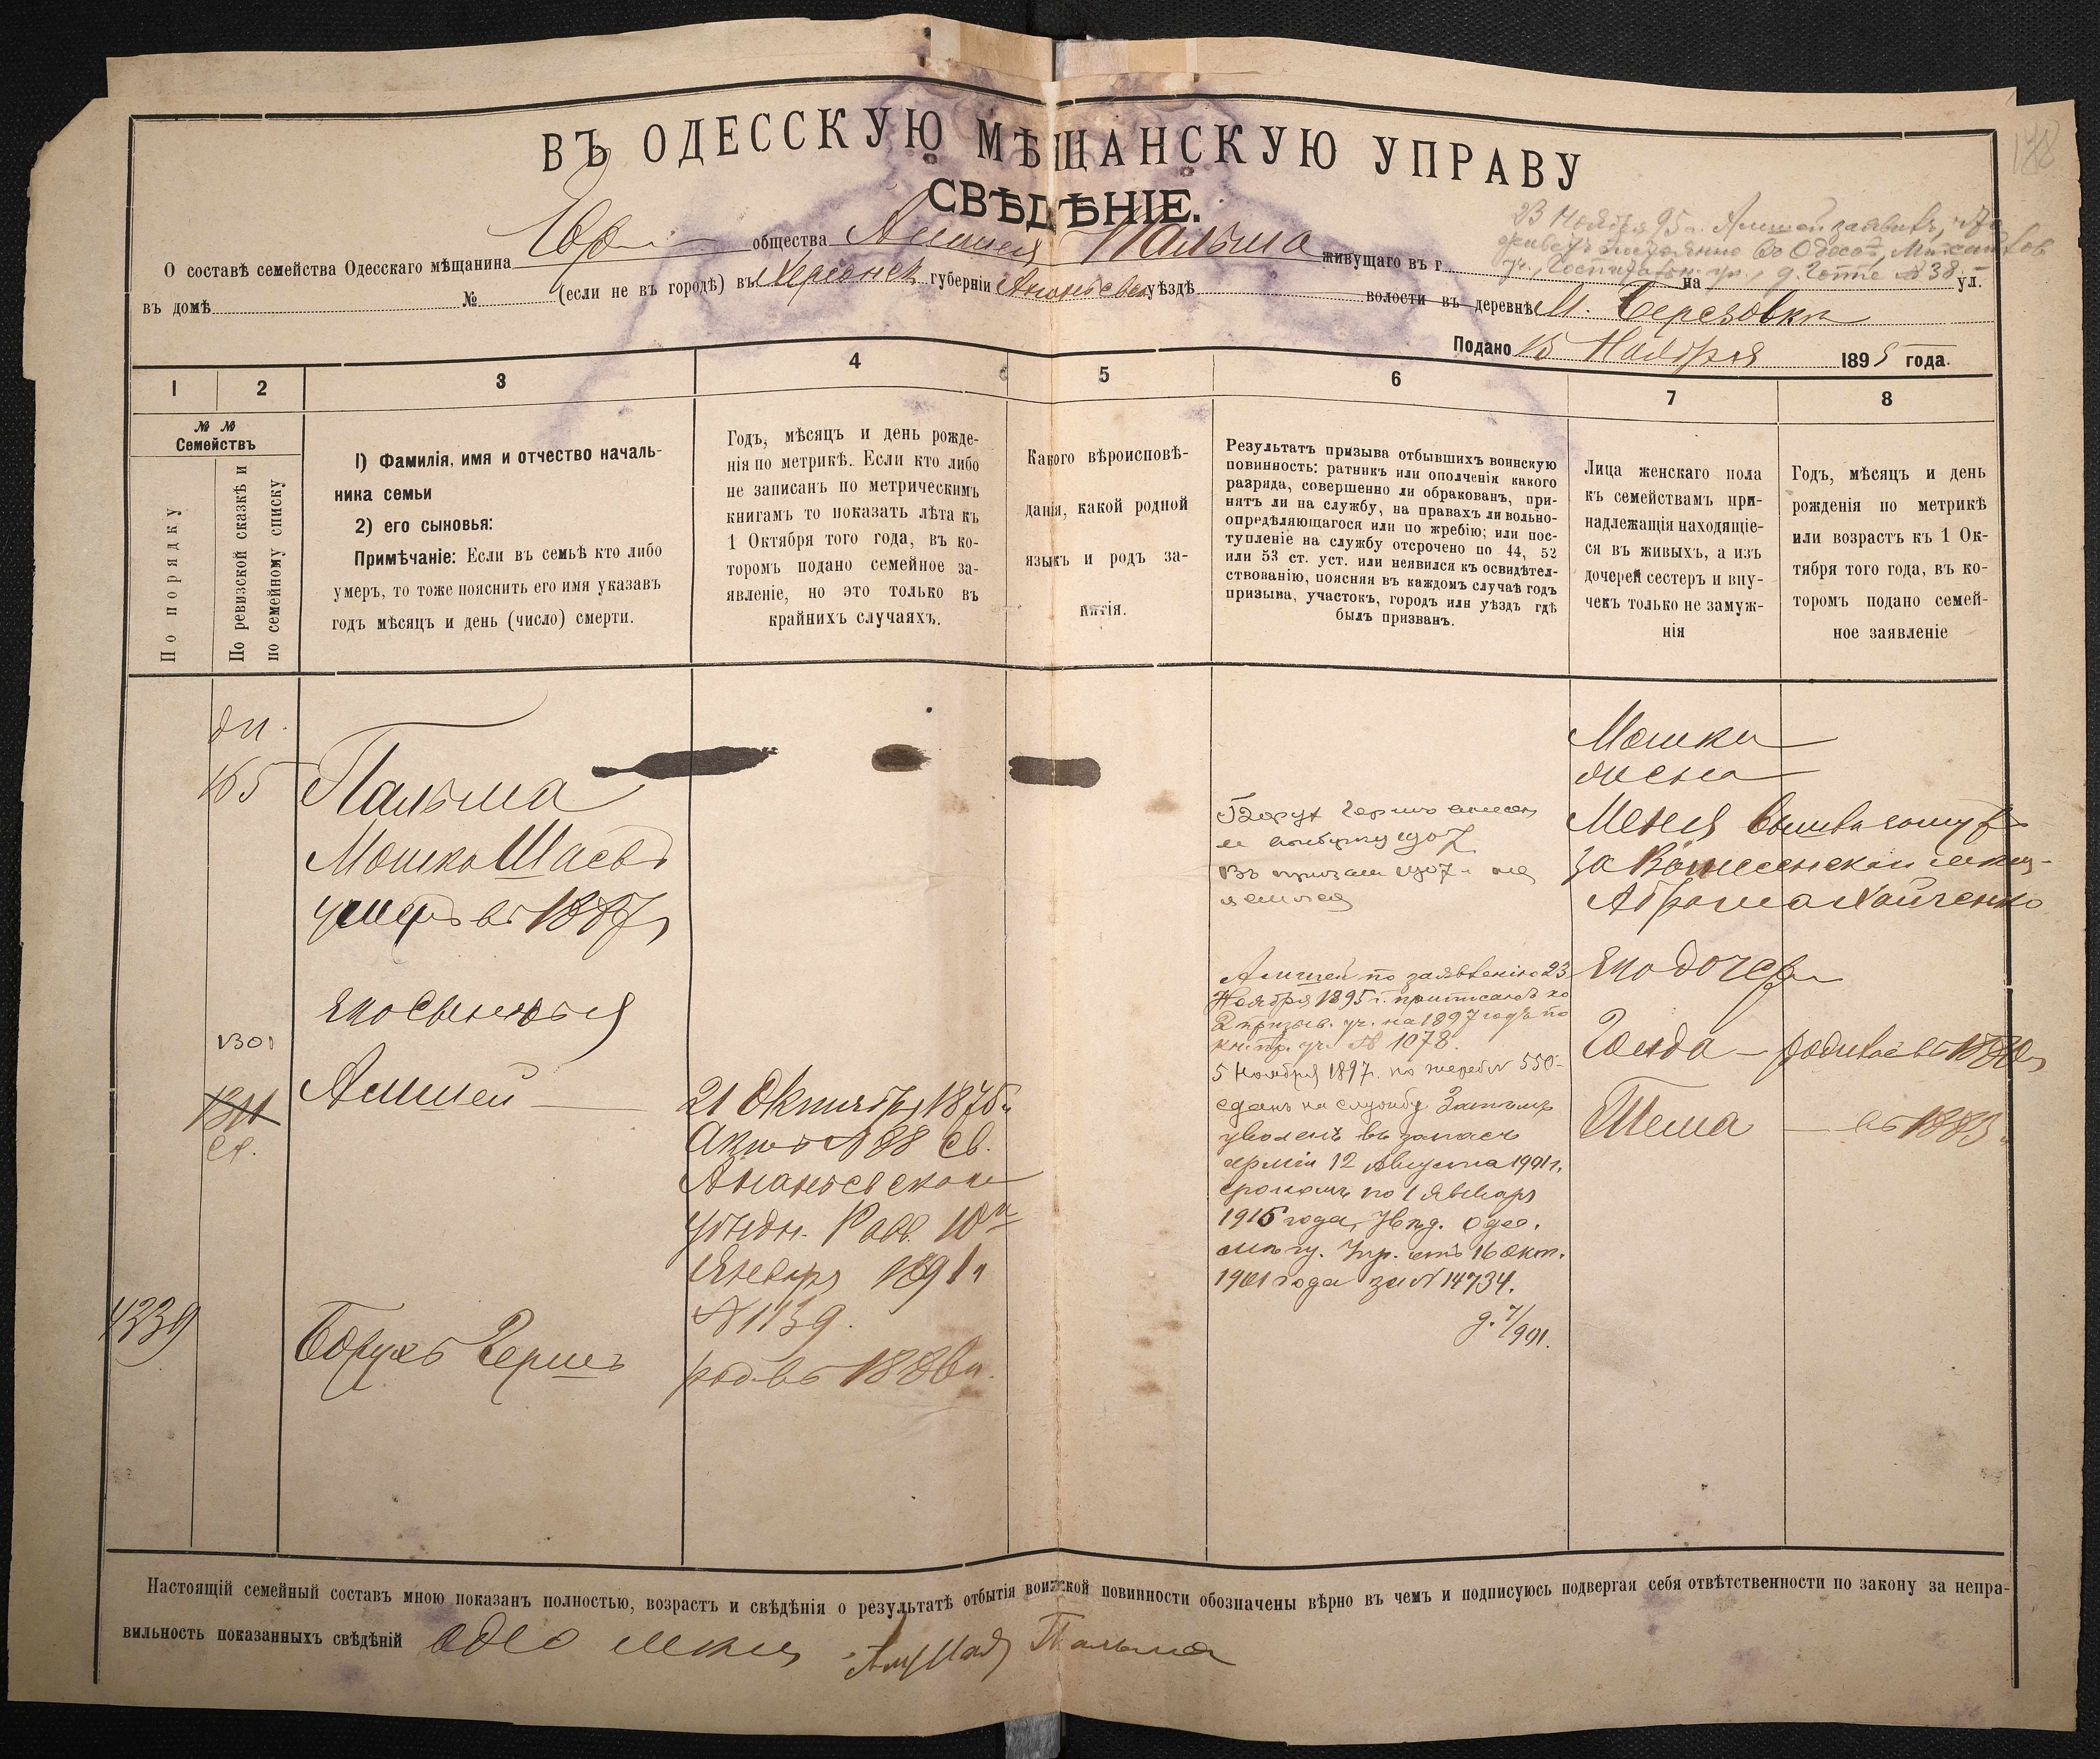 178
ВЪ ОДЕССКУЮ МѢЩАНСКУЮ УПРАВУ
СВѢДѢНІЕ.
23 Ноября 95 г. Алтшей заявилъ, что
живетъ постоянно въ Одессѣ, Михайлов.
уч., Госпитальн. ул., д. Готте № 38.
О составѣ семейства Одесскаго мѣщанина Евр общества Пальма живущаго въ г. на ул.
въ домѣ № (если не въ городѣ) въ Херсонск. губерніи Ананьевск уѣздѣ волости въ деревнѣ М. Березовкѣ
Подано 15 Ноября 1895 года.
1 2 3 4 5 6 7 8
№ № Семействъ
По порядку
По ревизской сказкѣ и по семейному списку
1) Фамилія, имя и отчество началь-
ника семьи
2) его сыновья:
Примѣчаніе: Если въ семьѣ кто либо
умеръ, то тоже пояснить его имя указавъ
годъ мѣсяцъ и день (число) смерти.
Годъ, мѣсяцъ и день рожде-
нія по метрикѣ. Если кто либо
не записанъ по метрическимъ
книгамъ то показать лѣта къ
1 Октября того года, въ ко-
торомъ подано семейное за-
явленіе, но это только въ
крайнихъ случаяхъ.
Какого вѣроисповѣ-
данія, какой родной
языкъ и родъ за-
нятія.
Результатъ призыва отбывшихъ воинскую
повинность: ратникъ или ополченія какого
разряда, совершенно ли обракованъ, при-
нятъ ли на службу, на правахъ ли вольно-
опредѣляющагося или по жребію; или пос-
тупленіе на службу отсрочено по 44, 52
или 53 ст. уст. или неявился къ освидѣтел-
ствованію, поясняя въ каждомъ случаѣ годъ
призыва, участокъ, городъ или уѣздъ гдѣ
былъ призванъ.
Лица женскаго пола
къ семействамъ при-
надлежащія находящіе-
ся въ живыхъ, а изъ
дочерей сестеръ и вну-
чекъ только не замуж-
нія
Годъ, мѣсяцъ и день
рожденія по метрикѣ
или возрастъ къ 1 Ок-
тября того года, въ ко-
торомъ подано семей-
ное заявленіе
165
Пальма
Мошко Шаевъ
умеръ въ 1887 г
его сыновья
1301
Алтшей
21 Октября 1876 г
Актъ № 88 св.
Ананьевскаго
уѣздн. Равв. 10
Января 1891 г
№ 1139.
4239
Борухъ Гершъ
род. въ 1886 г.
Борух Гершъ внесен
1907
въ призыв 1907 г. не
явился
Алтшей по заявленію 23
Ноября 1895 г. приписанъ ко
2 призыв. уч. на 1897 годъ по
кн. пр. уч. № 1078.
5 Ноября 1897 г. по жереб № 550
сданъ на службу Затѣмъ
уволенъ въ запасъ
арміи 12 Августа 1901 г.
срокомъ по 1 Января
1916 года, Увѣд. Одес.
Упр. отъ 16 Окт.
1901 года за № 14734.
Мошки
жена
Меня вышла замуж
за Вознесенскаго мѣщ-
Абрама
его дочери
Голда — родилась въ 1880 г
Шема — въ 1883 г
Настоящій семейный составъ мною показанъ полностью, возрастъ и свѣдѣнія о результатѣ отбытія воинской повинности обозначены вѣрно въ чемъ и подписуюсь подвергая себя отвѣтственности по закону за непра-
вильность показанныхъ свѣдѣній Одес мѣщ Пальма